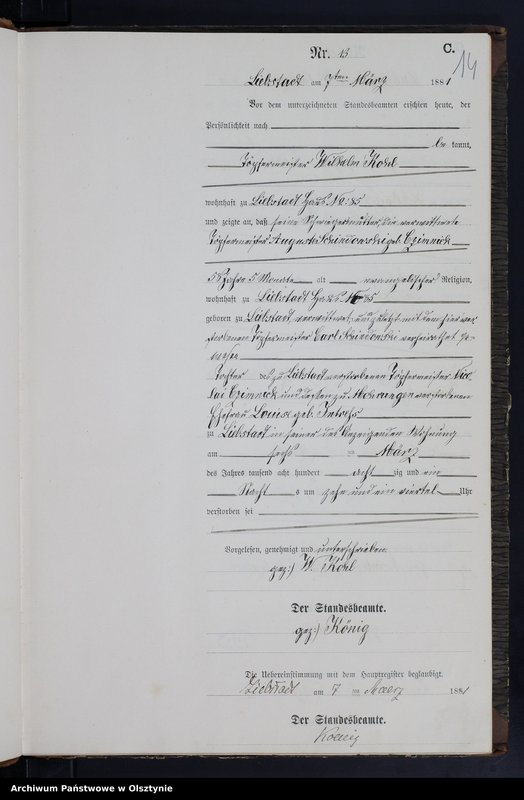 Nr. 13
C.
14
Liebstadt am 7ten März 1881
Vor dem unterzeichneten Standesbeamten erschien heute, der
Persönlichkeit nach
be kannt,
Töpfermeister Wilhelm
wohnhaft zu Liebstadt Haus No: 85
und zeigte an, daß seine Schwiegermutter, die verwittwete
Töpfermeister geb. Czimnick
58 Jahre 5 Monate alt evangelischer Religion,
wohnhaft zu Liebstadt Haus No 85
geboren zu Liebstadt, verwittwet und zuletzt mit dem hier ver
storbenen Töpfermeister Carl verheirathet ge-
wesen
Tochter des zu Liebstadt verstorbenen Töpfermeister
Czimnick und dessen zu Mohrungen verstorbenen
Ehefrau Louise geb.
zu Liebstadt in seiner des Anzeigenden Wohnung
am sechs ten März
des Jahres tausend acht hundert acht zig und ein
Nacht s um zehn und ein viertel Uhr
verstorben sei
Vorgelesen, genehmigt und unterschrieben
gez:) W.
Der Standesbeamte.
gez:) König
Die Uebereinstimmung mit dem Hauptregister beglaubigt.
Liebstadt am 7 ten Maerz 1881
Der Standesbeamte.
Koenig
Archiwum Państwowe w Olsztynie